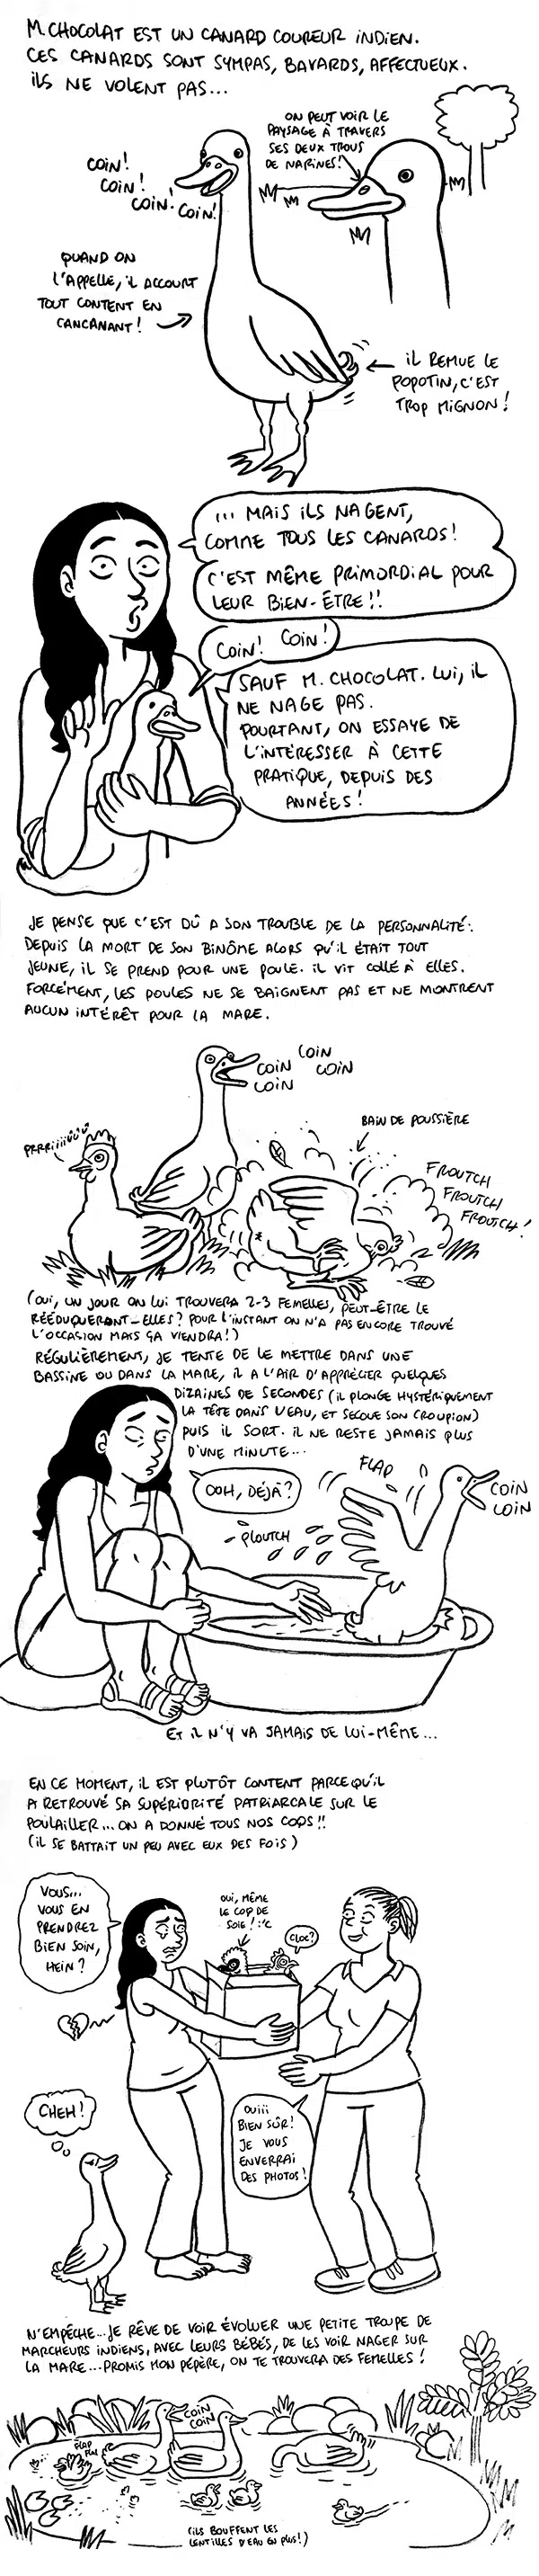 M. CHOCOLAT EST UN CANARD COUREUR INDIEN.
CES CANARDS SONT SYMPAS, BAVARDS, AFFECTUEUX.
ILS NE VOLENT PAS...
ON PEUT VOIR LE
PAYSAGE À TRAVERS
SES DEUX TROUS
DE NARINES!
COIN!
COIN!
COIN!
COIN!
QUAND ON
L'APPELLE, IL ACCOURT
TOUT CONTENT EN
CANCANANT!
IL REMUE LE
POPOTIN, C'EST
TROP MIGNON!
... MAIS ILS NAGENT,
COMME TOUS LES CANARDS!
C'EST MÊME PRIMORDIAL POUR
LEUR BIEN-ÊTRE!!
COIN! COIN!
SAUF M. CHOCOLAT. LUI, IL
NE NAGE PAS.
POURTANT, ON ESSAYE DE
L'INTÉRESSER À CETTE
PRATIQUE, DEPUIS DES
ANNÉES!
JE PENSE QUE C'EST DÛ A SON TROUBLE DE LA PERSONNALITÉ:
DEPUIS LA MORT DE SON BINÔME ALORS QU'IL ÉTAIT TOUT
JEUNE, IL SE PREND POUR UNE POULE. IL VIT COLLÉ À ELLES.
FORCÉMENT, LES POULES NE SE BAIGNENT PAS ET NE MONTRENT
AUCUN INTÉRÊT POUR LA MARE.
COIN
COIN
COIN
COIN
BAIN DE POUSSIÈRE
PRRRiiiiÛÛÛ
FROUTCH
FROUTCH
FROUTCH!
(OUI, UN JOUR ON LUI TROUVERA 2-3 FEMELLES, PEUT-ÊTRE LE
RÉÉDUQUERONT-ELLES? POUR L'INSTANT ON N'A PAS ENCORE TROUVÉ
L'OCCASION MAIS ÇA VIENDRA!)
RÉGULIÈREMENT, JE TENTE DE LE METTRE DANS UNE
BASSINE OU DANS LA MARE, IL A L'AIR D'APPRÉCIER QUELQUES
DIZAINES DE SECONDES (IL PLONGE HYSTÉRIQUEMENT
LA TÊTE DANS L'EAU, ET SECOUE SON CROUPION)
PUIS IL SORT. IL NE RESTE JAMAIS PLUS
D'UNE MINUTE...
FLAP
COIN
COIN
OOH, DÉJÀ?
PLOUTCH
ET IL N'Y VA JAMAIS DE LUI-MÊME...
EN CE MOMENT, IL EST PLUTÔT CONTENT PARCEQU'IL
A RETROUVÉ SA SUPÉRIORITÉ PATRIARCALE SUR LE
POULAILLER... ON A DONNÉ TOUS NOS COQS!!
(IL SE BATTAIT UN PEU AVEC EUX DES FOIS)
VOUS...
VOUS EN
PRENDREZ
BIEN SOIN,
HEIN?
OUI, MÊME
LE COQ DE
SOIE! :'C
CLOC?
CHEH!
OUIII
BIEN SÛR!
JE VOUS
ENVERRAI
DES PHOTOS!
N'EMPÊCHE... JE RÊVE DE VOIR ÉVOLUER UNE PETITE TROUPE DE
MARCHEURS INDIENS, AVEC LEURS BÉBÉS, DE LES VOIR NAGER SUR
LA MARE... PROMIS MON PÉPÈRE, ON TE TROUVERA DES FEMELLES!
COIN
COIN
FLAP
FLAP
(ILS BOUFFENT LES
LENTILLES D'EAU EN PLUS!)